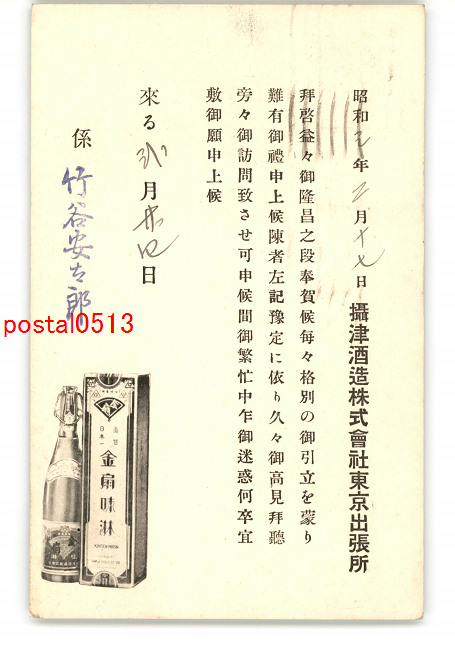 昭和三年二月十七日
攝津酒造株式會社東京出張所
拜啓益々御隆昌之段奉賀候每々格別の御引立を蒙り
難有御禮申上候陳者左記豫定に依り久々御高見拜聽
旁々御訪問致させ可申候間御繁忙中乍御迷惑何卒宜
敷御願申上候
來る 月廿四日
係 竹谷安太郎
postal0513
日本一
金扇味淋